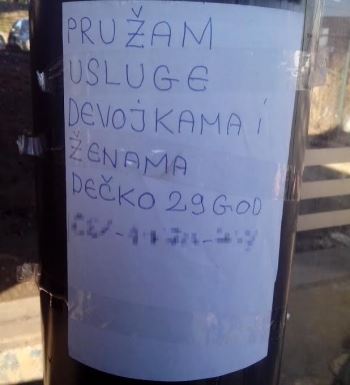 PRUŽAM
USLUGE
DEVOJKAMA I
ŽENAMA
DEČKO 29 GOD